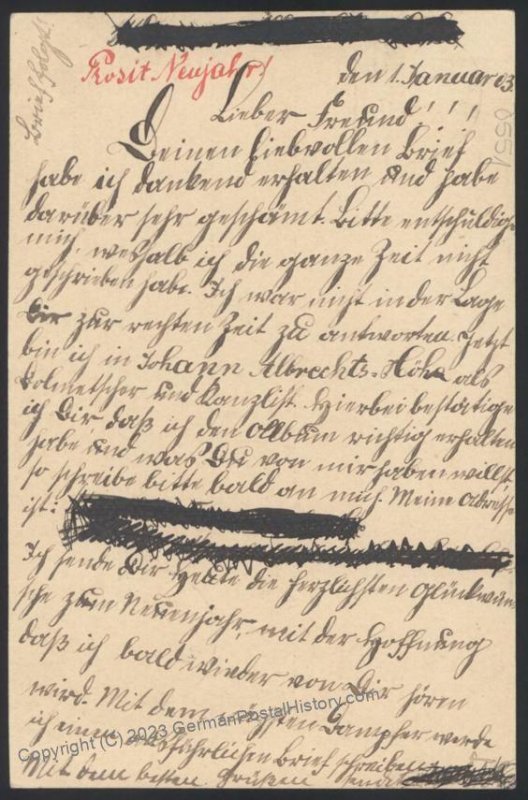 Brief folgt!
Prosit Neujahr!
den 1. Januar 03.
Lieber Freund!!!
Deinen liebvollen Brief
habe ich dankend erhalten und habe
darüber sehr geschämt. Bitte entschuldige
mich, weshalb ich die ganze Zeit nicht
geschrieben habe. Ich war nicht in der Lage
Dir zur rechten Zeit zu antworten. Jetzt
bin ich in Johann Albrechts-Höhe als
Dolmetscher und Kanzlist. Hierbei bestätige
ich Dir daß ich den Album richtig erhalten
habe und was Du von mir haben willst
so schreibe bitte bald an mich. Meine Adresse
ist:
Ich sende Dir heute die herzlichsten Glückwün-
sche zum Neuenjahr, mit der Hoffnung
daß ich bald wieder von Dir hören
wird. Mit dem nächsten Dampfer werde
ich einen ausführlichen Brief schreiben
Mit dem besten Grüßen sendet
0551
Copyright (C) 2023 GermanPostalHistory.com